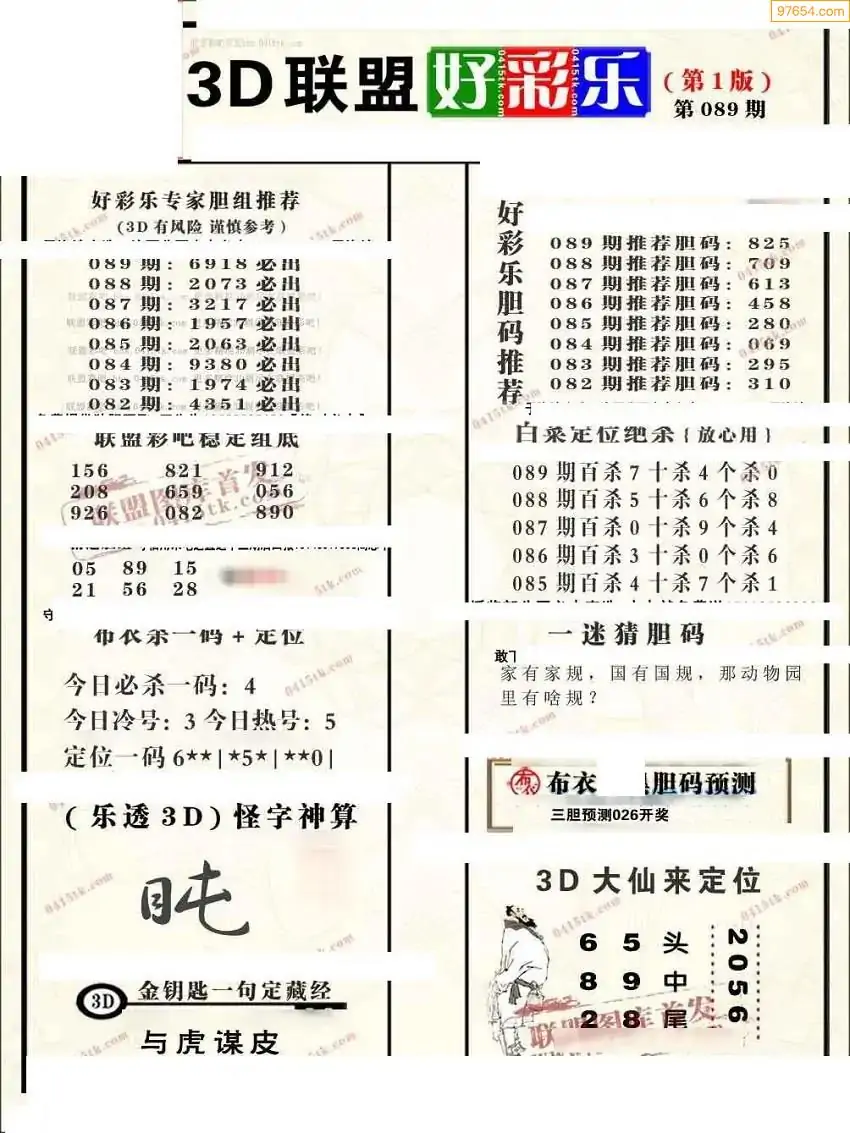 97654.com
3D联盟好彩乐
(第1版)
第089期
好彩乐专家胆组推荐
(3D有风险 谨慎参考)
089期: 6918必出
088期: 2073必出
087期: 3217必出
086期: 1957必出
085期: 2063必出
084期: 9380必出
083期: 1974必出
082期: 4351必出
联盟彩吧稳定组底
156 821 912
208 659 056
926 082 890
联盟图库首发
05 89 15
21 56 28
布衣杀一码+定位
今日必杀一码: 4
今日冷号: 3 今日热号: 5
定位一码 6**|*5*|**0|
(乐透3D)怪字神算
3D 金钥匙一句定藏经
与虎谋皮
好彩乐胆码推荐
089期推荐胆码: 825
088期推荐胆码: 709
087期推荐胆码: 613
086期推荐胆码: 458
085期推荐胆码: 280
084期推荐胆码: 069
083期推荐胆码: 295
082期推荐胆码: 310
白菜定位绝杀{放心用}
089期百杀7十杀4个杀0
088期百杀5十杀6个杀8
087期百杀0十杀9个杀4
086期百杀3十杀0个杀6
085期百杀4十杀7个杀1
一迷猜胆码
家有家规，国有国规，那动物园
里有啥规？
布衣 胆码预测
三胆预测026开奖
3D大仙来定位
6 5 头
8 9 中
2 8 尾
2056
联盟图库首发
0415tk.com